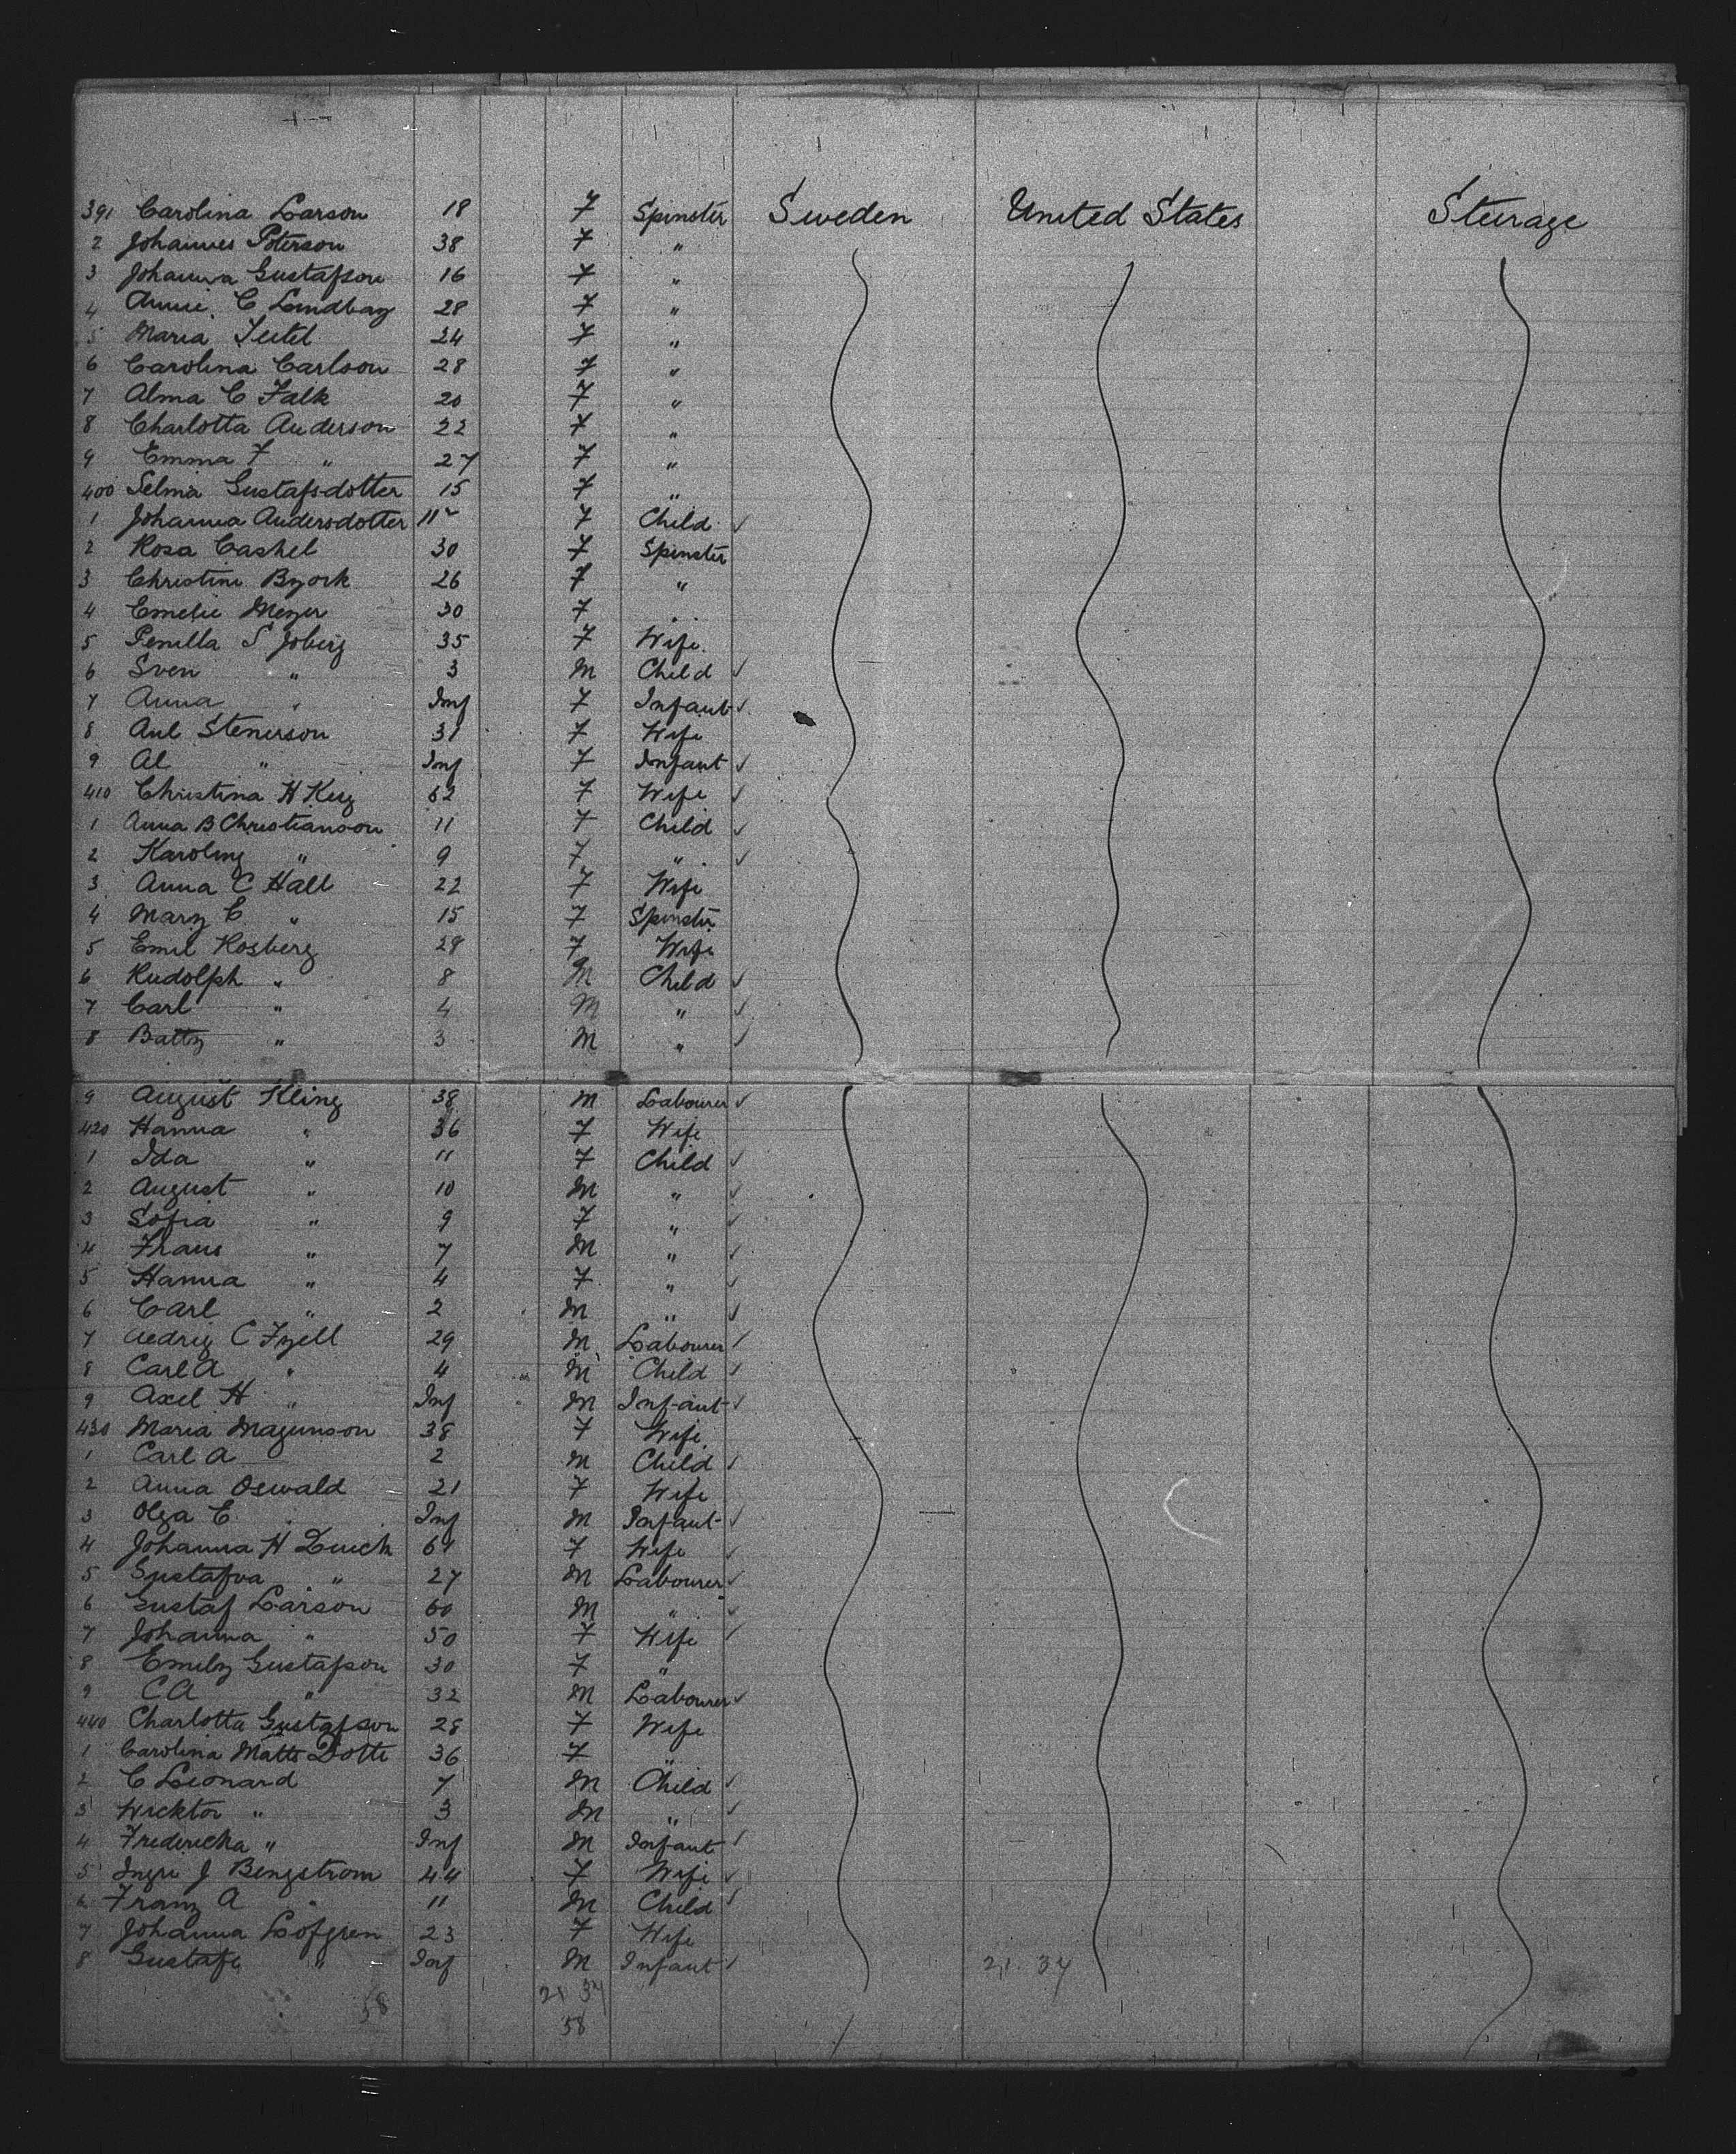 391 Carolina Larson 18 F Spinster Sweden United States Steerage
2 Johannes Peterson 38 F "
3 Johanna Gustafson 16 F "
4 Annie C Lundbag 28 F "
5 Maria 24 F "
6 Carolina Carlson 28 F "
7 Alma C Falk 20 F "
8 Charlotta Anderson 22 F "
9 Emma F " 27 F "
400 Selma Gustafsdotter 15 F "
1 Johanna Andersdotter 11 F Child ✓
2 Rosa Cashel 30 F Spinster
3 Christine Byork 26 F "
4 Emelie Meyer 30 F "
5 Penilla S Joberg 35 F Wife
6 Sven " 3 M Child ✓
7 Anna " Inf F Infant ✓
8 Aul Stenerson 31 F Wife
9 Al " Inf F Infant ✓
410 Christina H Keg 62 F Wife ✓
1 Anna B Christianson 11 F Child ✓
2 Karoling " 9 F " ✓
3 Anna C Hall 22 F Wife
4 Mary C " 15 F Spinster
5 Emil Rosberg 28 F Wife
6 Rudolph " 8 M Child ✓
7 Carl " 4 M " ✓
8 Batty " 3 M " ✓
9 August Kling 38 M Labourer ✓
420 Hanna " 36 F Wife
1 Ida " 11 F Child ✓
2 August " 10 M " ✓
3 Sofia " 9 F " ✓
4 Frans " 7 M " ✓
5 Hanna " 4 F " ✓
6 Carl " 2 M " ✓
7 Aedrig C Fyell 29 M Labourer ✓
8 Carl A " 4 M Child ✓
9 Axel H " Inf M Infant ✓
430 Maria Magunson 38 F Wife
1 Carl A 2 M Child ✓
2 Anna Oswald 21 F Wife
3 Olga E " Inf M Infant ✓
4 Johanna H 61 F Wife ✓
5 Gustafva " 27 M Labourer ✓
6 Gustaf Larson 60 M " ✓
7 Johanna " 50 F Wife ✓
8 Emily Gustafson 30 F "
9 C A " 32 M Labourer ✓
440 Charlotta Gustafson 28 F Wife
1 Carolina Matts Dotte 36 F "
2 C Leonard 7 M Child ✓
3 Wicktor " 3 M " ✓
4 Fredericka " Inf M Infant ✓
5 Ingri J Bengstrom 44 F Wife ✓
6 Franz A " 11 M Child ✓
7 Johanna Lofgren 23 F Wife
8 Gustafe " Inf M Infant ✓ 21 37
58 21 37
58